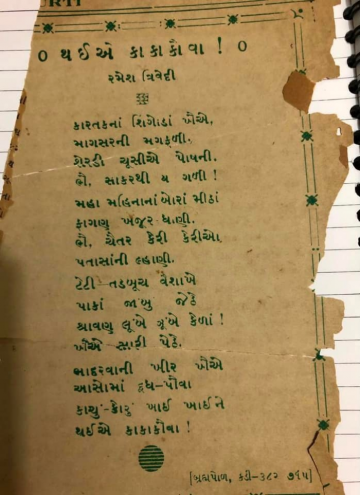 RTI
૦ થઈએ કાકાકૌવા ! ૦
રમેશ ત્રિવેદી
કારતકનાં શિંગોડાં ખૈએ,
માગસરની મગફળી.
શેરડી ચૂસીએ પોષની.
ભૈ, સાકરથી ય ગળી !
મહા મહિનાનાં બોરાં મીઠાં
ફાગણુ ખજૂર-ધાણી.
ભૈ, ચૈતર કેરી કેરીઓ,
પતાસાંની લ્હાણી.
ટેટી તડબૂચ વૈશાખે
પાકાં જાંબુ જેઠે
શ્રાવણુ લૂંબે ઝૂંબે કેળાં !
ખૈએ સારી પેઠે.
ભાદરવાની ખીર ખૈએ
આસોમાં દૂધ-પૌંવા
કાચું-કોરું ખાઈ ખાઈને
થઈએ કાકાકૌવા !
[બ્રહ્મપોળ, કડી-૩૮૨ ૭૧૫]